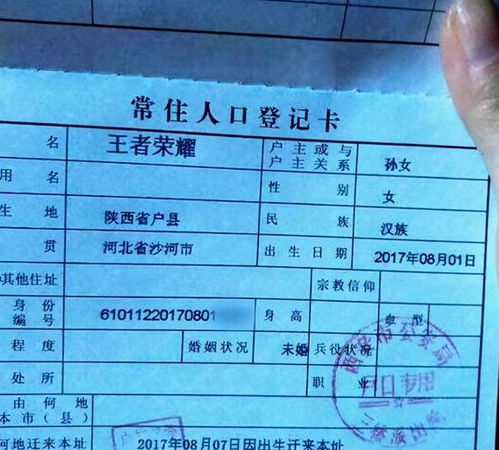 常住人口登记卡
名 王者荣耀 户主或与户主关系 孙女
用名 性别 女
生地 陕西省户县 民族 汉族
贯 河北省沙河市 出生日期 2017年08月01日
其他住址 宗教信仰
身份编号 61011220170801 身高 血型
程度 婚姻状况 未婚 兵役状况
处所 职业
由何地
本市（县）
何地迁来本址 2017年08月07日因出生迁来本址
西安市公安局
户口专用